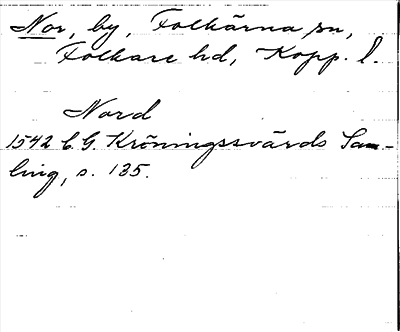 Nor, by, Folkärna sn,
Folkare hd, Kopp. l.
Nord
1542 C. G. Kröningssvärds Sam-
ling, s. 135.